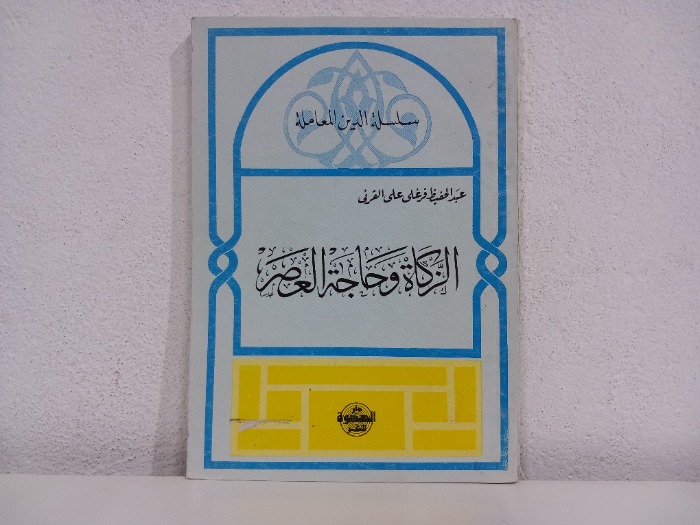 سلسلة الدين المعاملة
عبد الحفيظ فرغلى على القرنى
الزَّكاة وَحَاجَة العَصْر
دار
الصحوة
للنشر